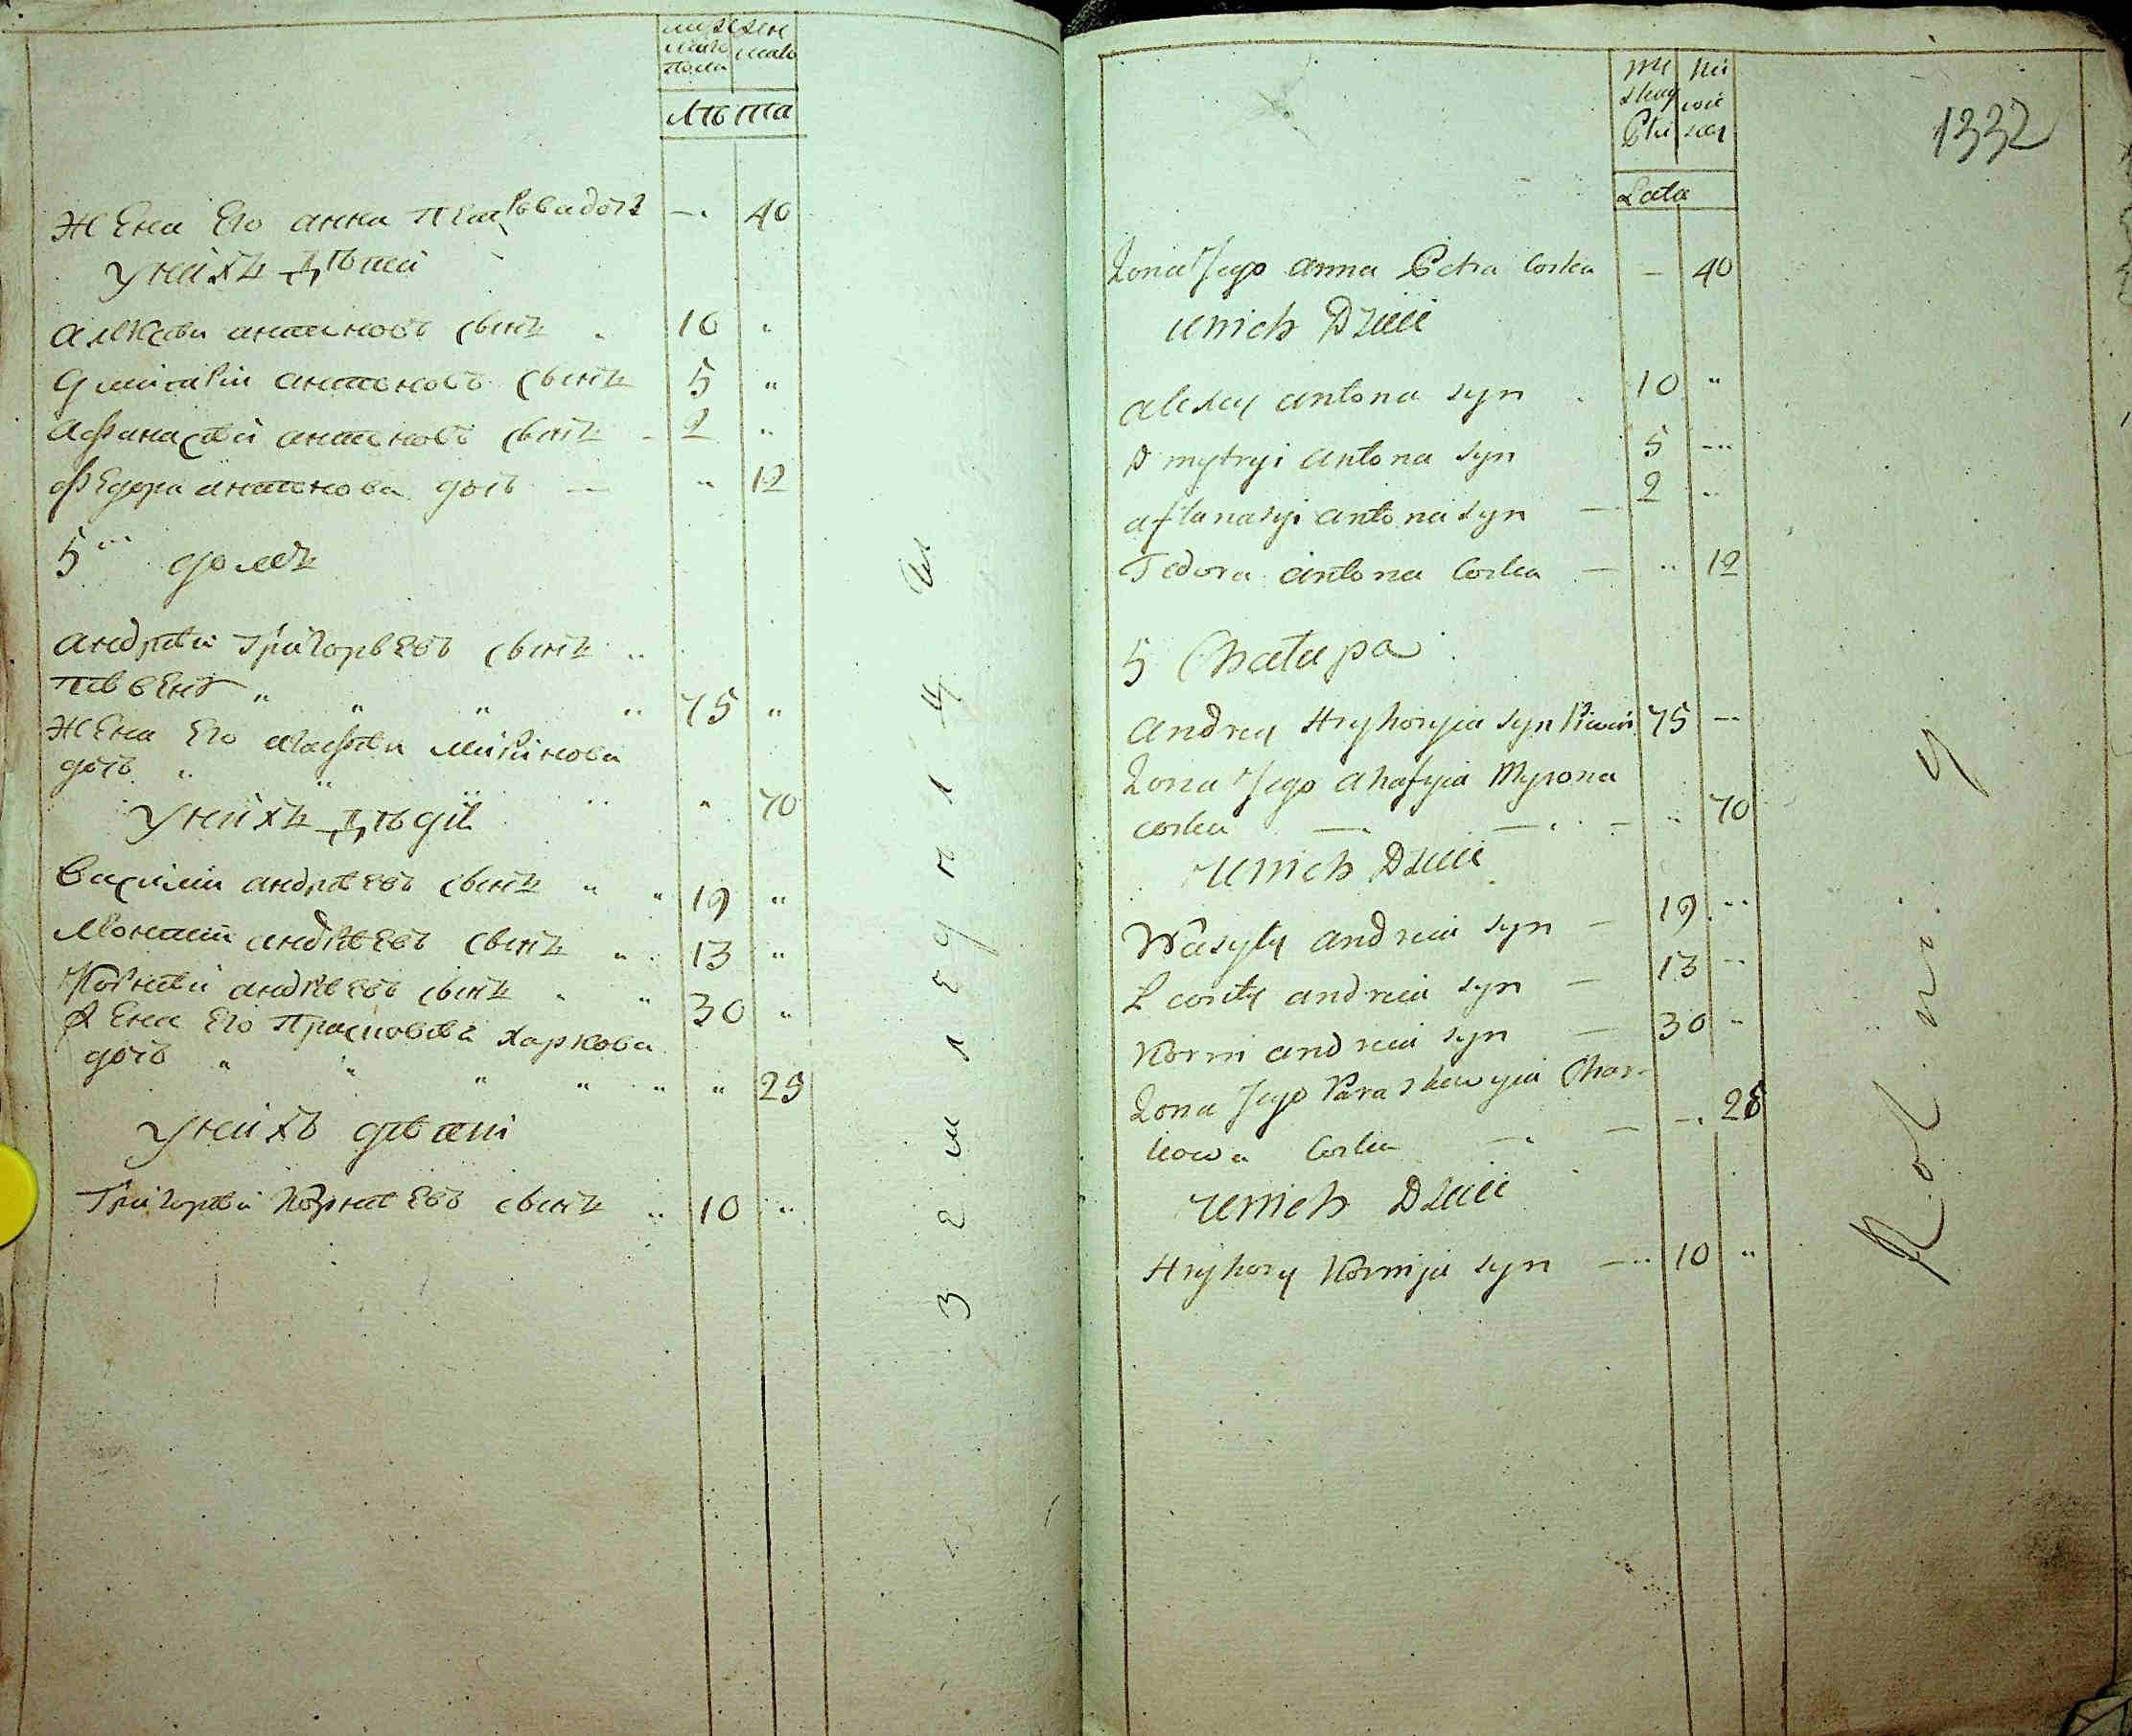 мужес женс
каго каго
пола
лѣта
Жена Его анна петровадочь — 40
Унихъ Дѣтеи
алексѣи антоновъ сынъ 10 "
дмитріи антоновъ сынъ 5 "
афанасѣи антоновъ сынъ 2 "
Федора антонова дочь — " 12
5 и домъ
андрѣи григорьевъ сынъ
пѣвень " " " " 75 "
Жена Его агафѣи миронова
дочь " " " " 70
Унихъ Дѣтѣи
василии андрѣевъ сынъ " " 19 "
леонтии андрѣевъ сынъ " 13 "
Корнѣи андрѣевъ сынъ " " 30 "
Жена Его Прасковѣя харкова
дочь " " " " " " 25
Унихъ дѣтеи
григорѣи Корнѣевъ сынъ " 10 "
З е м л е д е л ц ы
1332
Mę Nie
skiey wie
Płci sciey
Lata
Żona Jego anna Petra Corka — 40
unich Dzieci
alexey antona syn 10 "
Dmytryi antona syn 5 —
aftanasyi antona syn — 2 "
Fedora antona Corka — " 12
5 Chatupa
andrey Hryhoryia syn Piwień 75 —
Żona Jego ahafyia Myrona
corka — — — " 70
unich Dzieci
Wasyly andreia syn — 19 "
Leonty andreia syn — 13 —
Korni andreia syn — 30 "
Żona Jego Paraskewyia Char-
kowa Corka — — — 28
unich Dzieci
Hryhory Kornija syn — 10 "
R o l n i c y